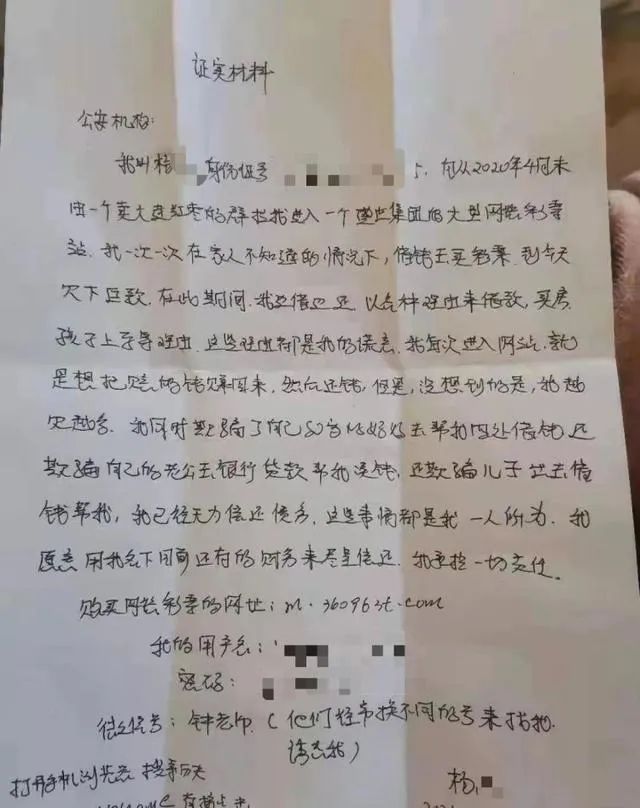 证实材料
公安机构:
我叫杨 身份证号 5. 自从2020年4月末
由一个卖大连红枣的群拉我进入一个盛世集团的大型网络彩票
站. 我一次一次在家人不知道的情况下, 借钱去买彩票. 到今天
欠下巨款. 在此期间. 我边借边还. 以各种理由来借款, 买房.
孩子上学等理由. 这些理由都是我的谎言. 我每次进入网站. 就
是想把赔的钱赚回来. 然后还钱, 但是, 没想到的是, 我越
欠越多. 我同时欺骗了自己80岁的妈妈去帮我四处借钱. 还
欺骗自己的老公去银行贷款帮我还钱, 还欺骗儿子 出去借
钱帮我, 我已经无力偿还债务. 这些事情都是我一人所为. 我
愿意用我名下目前还有的财务来尽量偿还. 我承担一切责任.
购买网络彩票的网址: m.360963t.com
我的用户名:
密码:
微信号: 钟老师. (他们经常换不同的号来找我.
请查我)
打开手机浏览器 搜索历史
杨